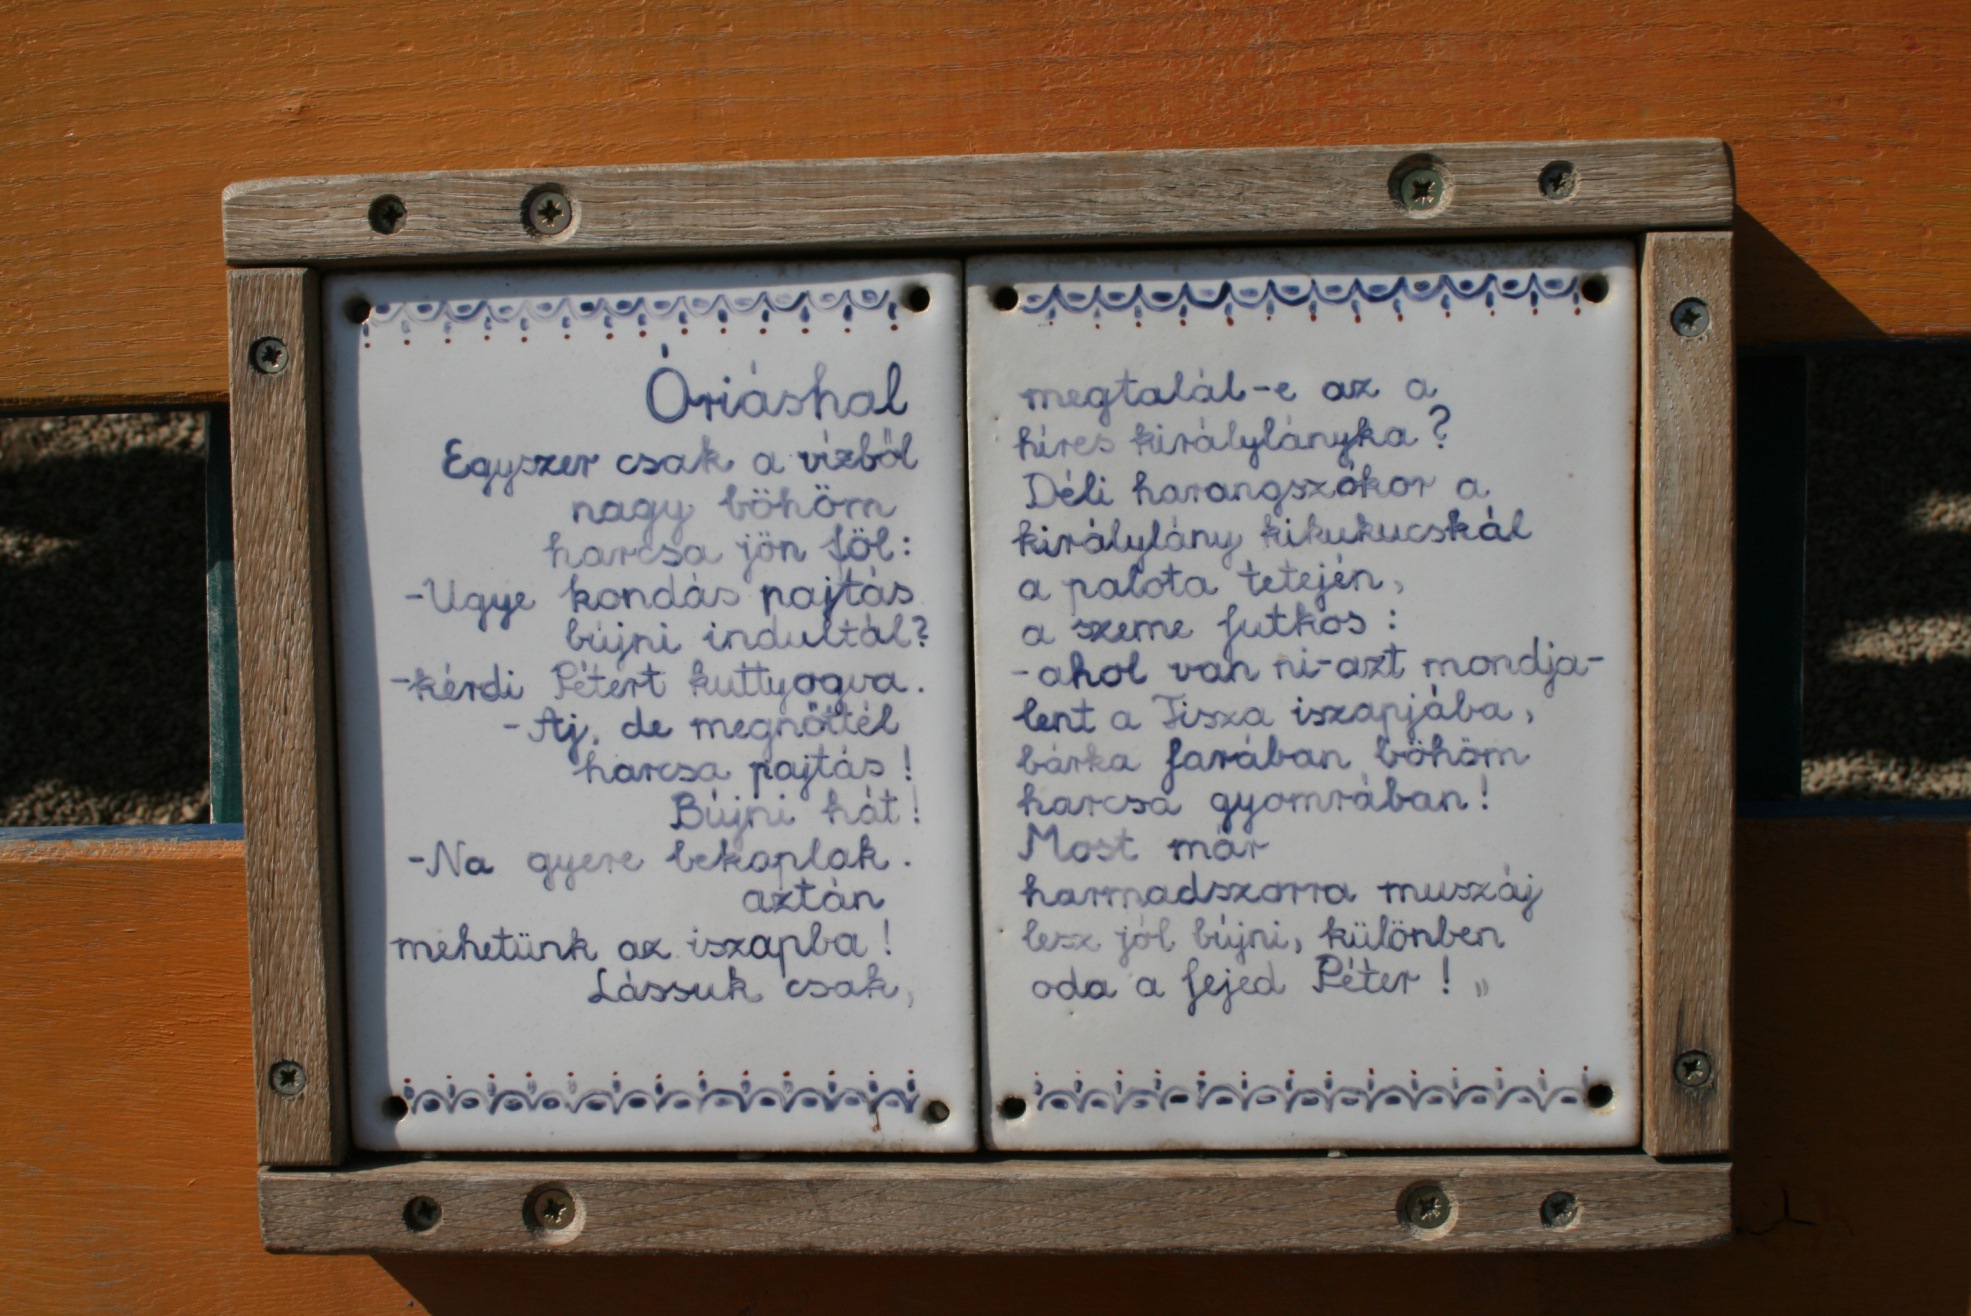 Óriáshal
Egyszer csak a vízből
nagy böhöm
harcsa jön föl:
-Ugye kondás pajtás
bújni indultál?
-kérdi Pétert kuttyogva.
-Aj, de megnőttél
harcsa pajtás!
Bújni hát!
-Na gyere bekaplak.
aztán
mehetünk az iszapba!
Lássuk csak,
megtalál-e az a
híres királylányka?
Déli harangszókor a
királylány kikukucskál
a palota tetején,
a szeme futkos:
-ahol van ni-azt mondja-
lent a Tisza iszapjába,
bárka farában böhöm
harcsa gyomrában!
Most már
harmadszorra muszáj
lesz jól bújni, különben
oda a fejed Péter!"